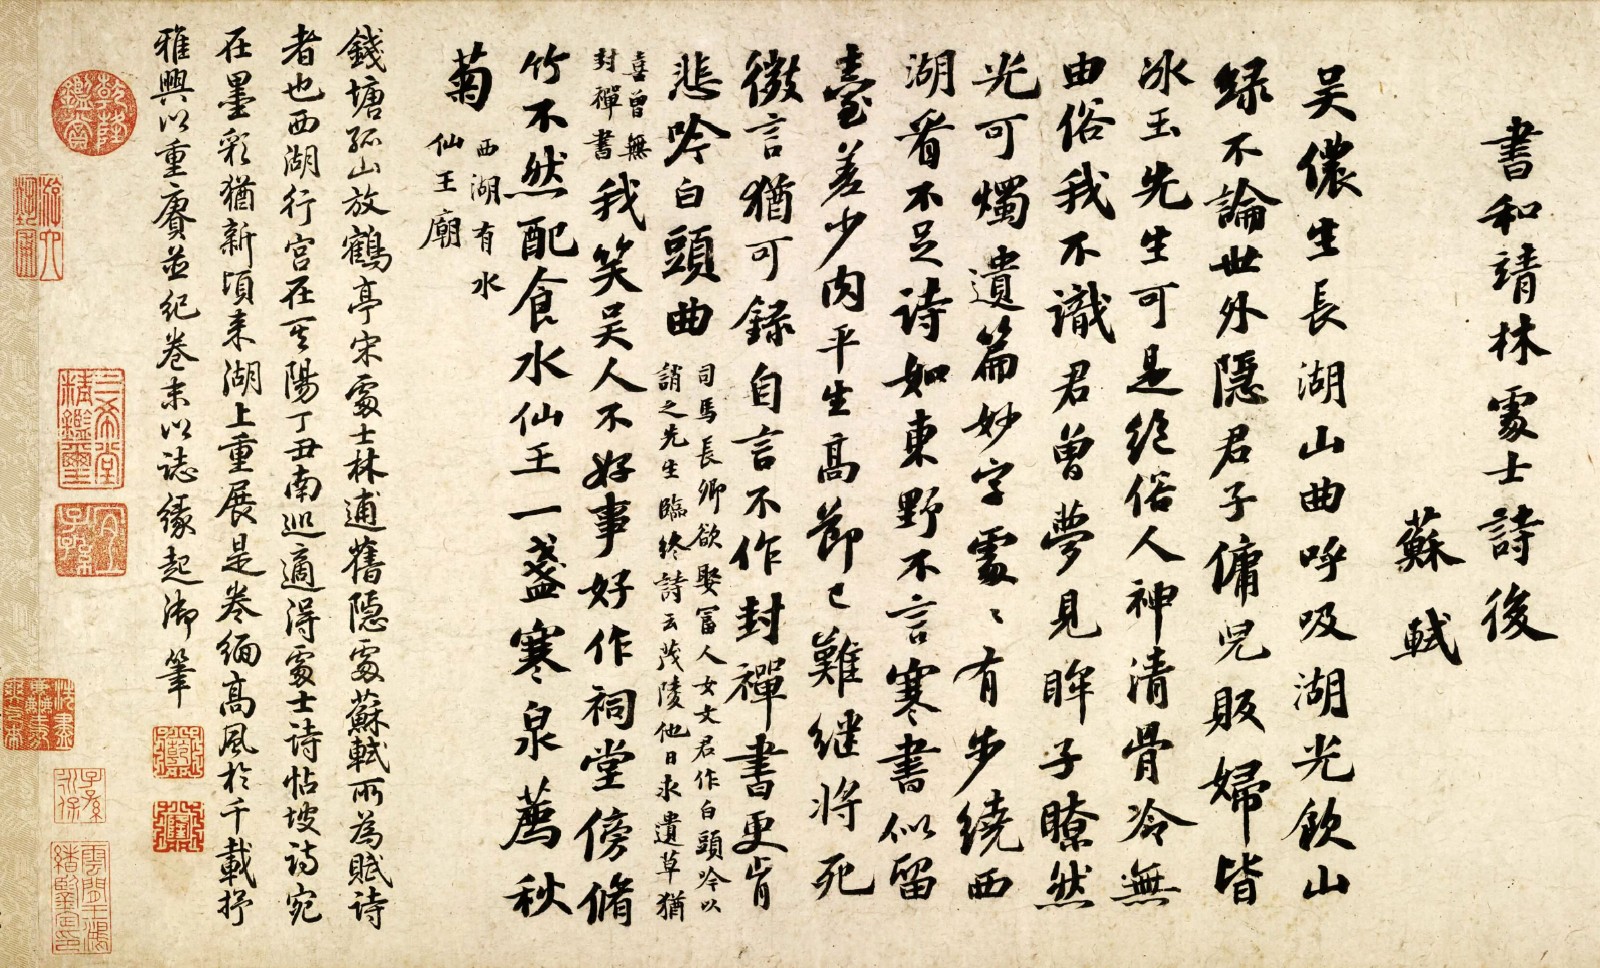 書和靖林處士詩後
蘇軾
吴儂生長湖山曲呼吸湖光飲山
緑不論世外隱君子傭兒販婦皆
冰玉先生可是絕俗人神清骨冷無
由俗我不識君曾夢見眸子瞭然
光可燭遺篇妙字處〻有步繞西
湖看不足詩如東野不言寒書似留
臺差少肉平生高節已難继將死
微言猶可録自言不作封禪書更肯
悲吟白頭曲
司馬長卿欲娶富人女文君作白頭吟以
誚之先生臨終詩云茂陵他日求遺草猶
喜曾無
封禪書
我笑吴人不好事好作祠堂傍脩
竹不然配食水仙王一盞寒泉薦秋
菊
西湖有水
仙王廟
錢塘孤山放鶴亭宋處士林逋舊隱處蘇軾所為賦詩
者也西湖行宫在其陽丁丑南巡適得處士詩帖坡詩宛
在墨彩猶新頃来湖上重展是卷緬高風於千載抒
雅興以重賡並紀卷末以誌緣起御筆
乾隆
鑑賞
三希堂
精鑑璽
宜
子孫